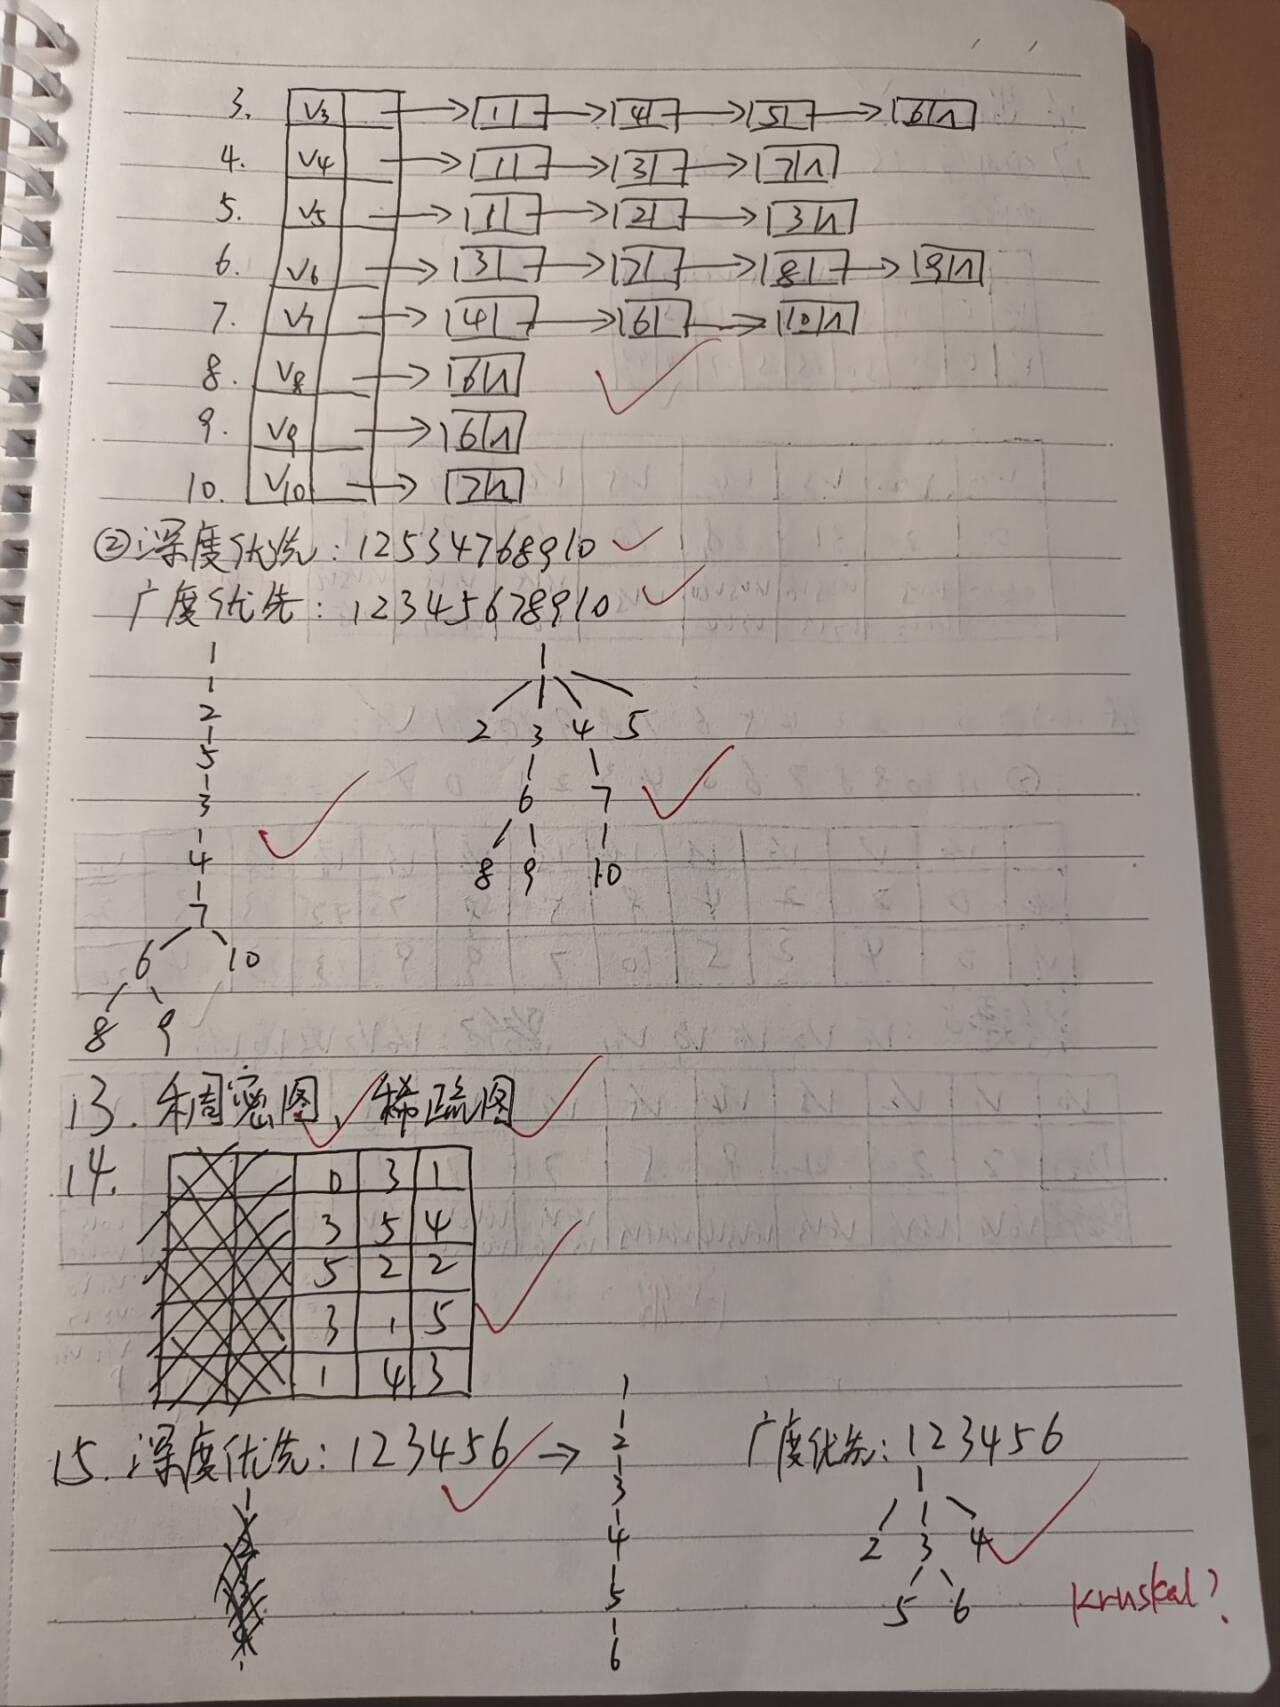 3. V3 → 1 → 4 → 5 → 6 ∧
4. V4 → 1 → 3 → 7 ∧
5. V5 → 1 → 2 → 3 ∧
6. V6 → 3 → 7 → 8 → 9 ∧
7. V7 → 4 → 6 → 10 ∧
8. V8 → 6 ∧
9. V9 → 6 ∧
10. V10 → 7 ∧
②深度优先:12534768910
广度优先:12345678910
1
2
5
3
4
7
6 10
8 9
1
2 3 4 5
6 7
8 9 10
13. 稠密图、稀疏图
14.
0 3 1
3 5 4
5 2 2
3 1 5
1 4 3
15. 深度优先:123456 →
1
2
3
4
5
6
广度优先:123456
1
2 3 4
5 6
kruskal?